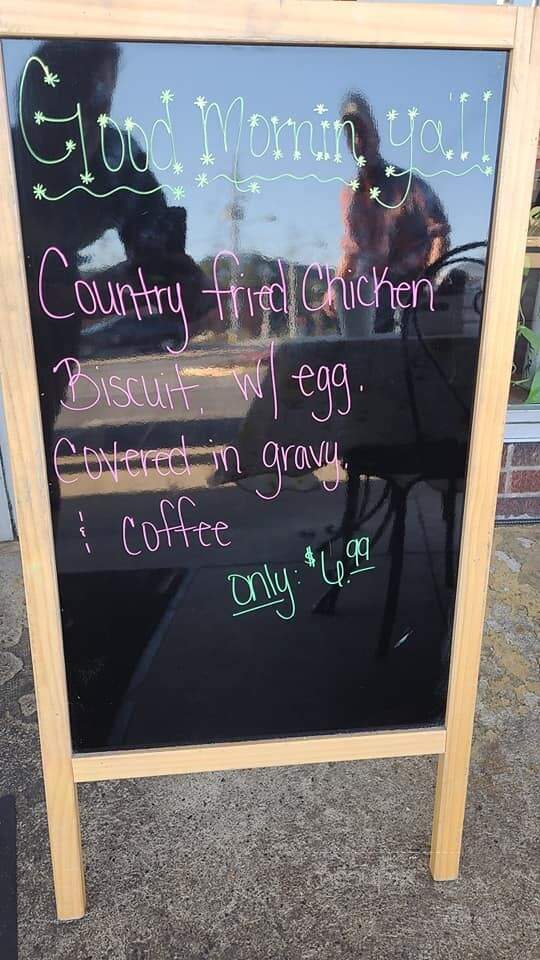 Good Mornin ya'll
Country fried Chicken
Biscuit, w/ egg.
Covered in gravy.
& coffee
only: $6.99